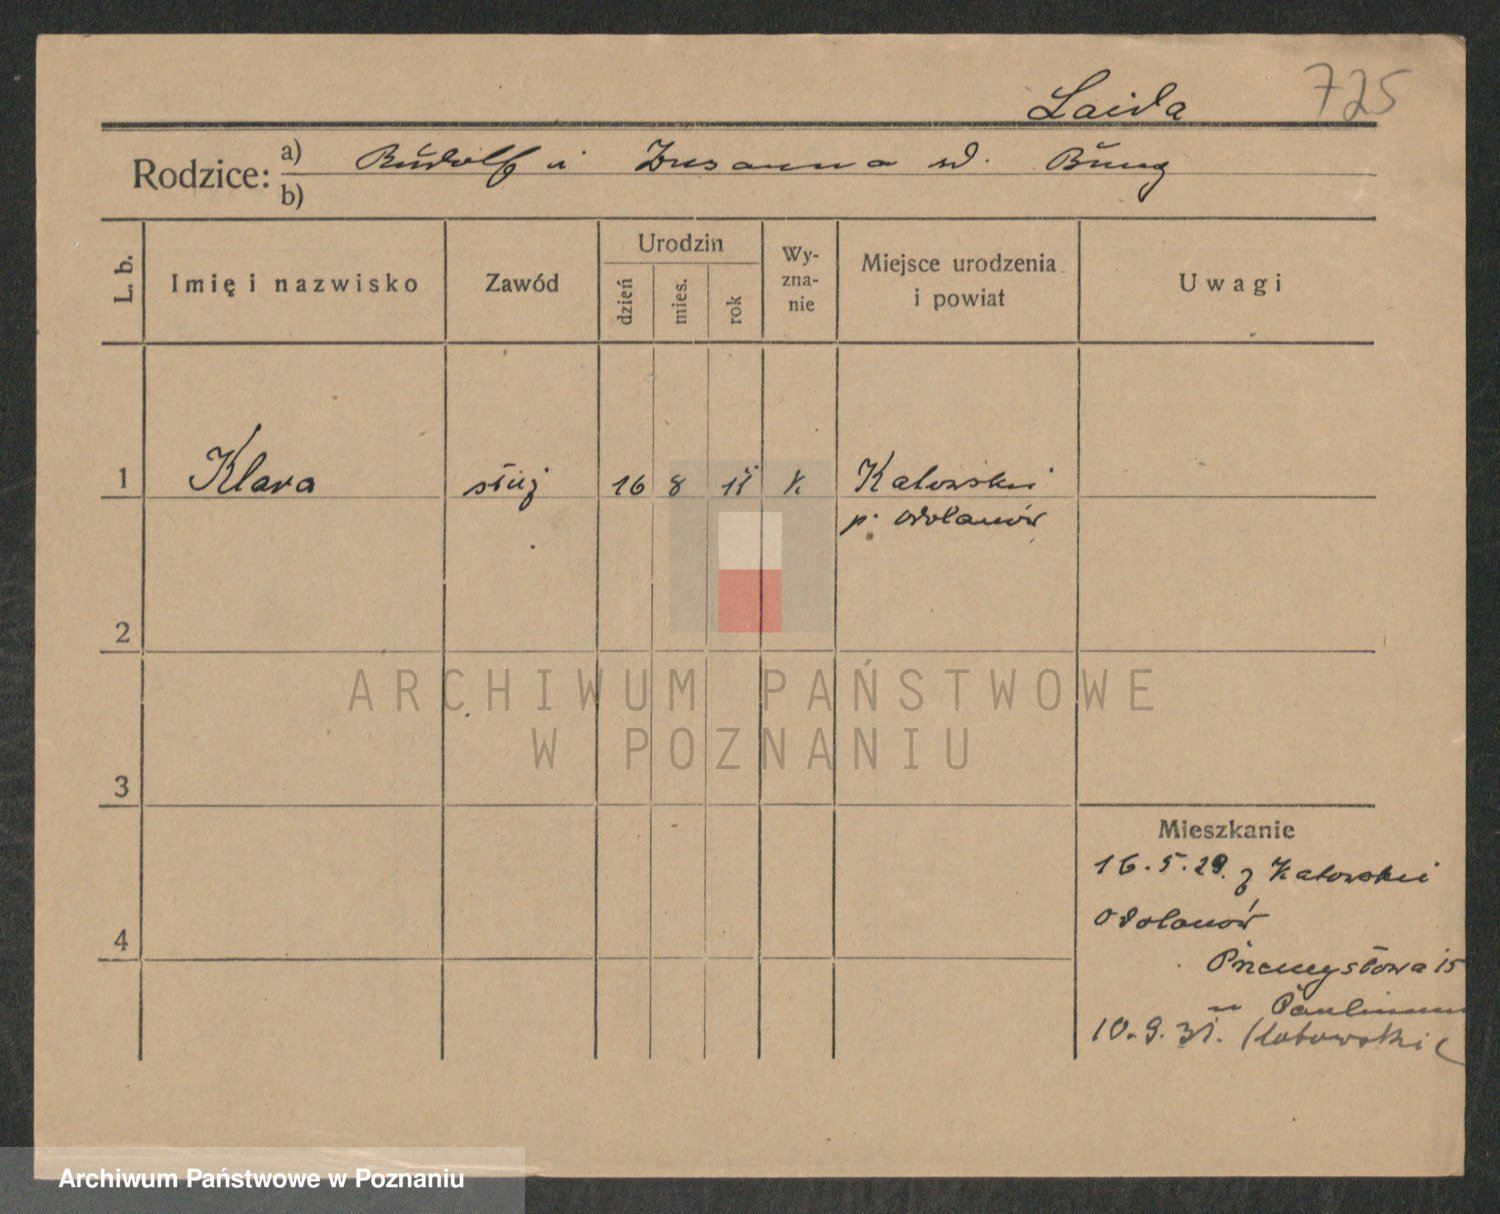 Laida 725
Rodzice: a) Rudolf i Zusanna
b)
L. b. Imię i nazwisko Zawód Urodzin dzień mies. rok Wy-zna-nie Miejsce urodzenia i powiat Uwagi
1 Klara służ 16 8 11 k. Katowskie
p. Odolanów
2
ARCHIWUM PAŃSTWOWE
W POZNANIU
3
Mieszkanie
16.5.29. z Katowskie
Odolanów
4
Przemysłowa 15
u
10.9.31.
Archiwum Państwowe w Poznaniu